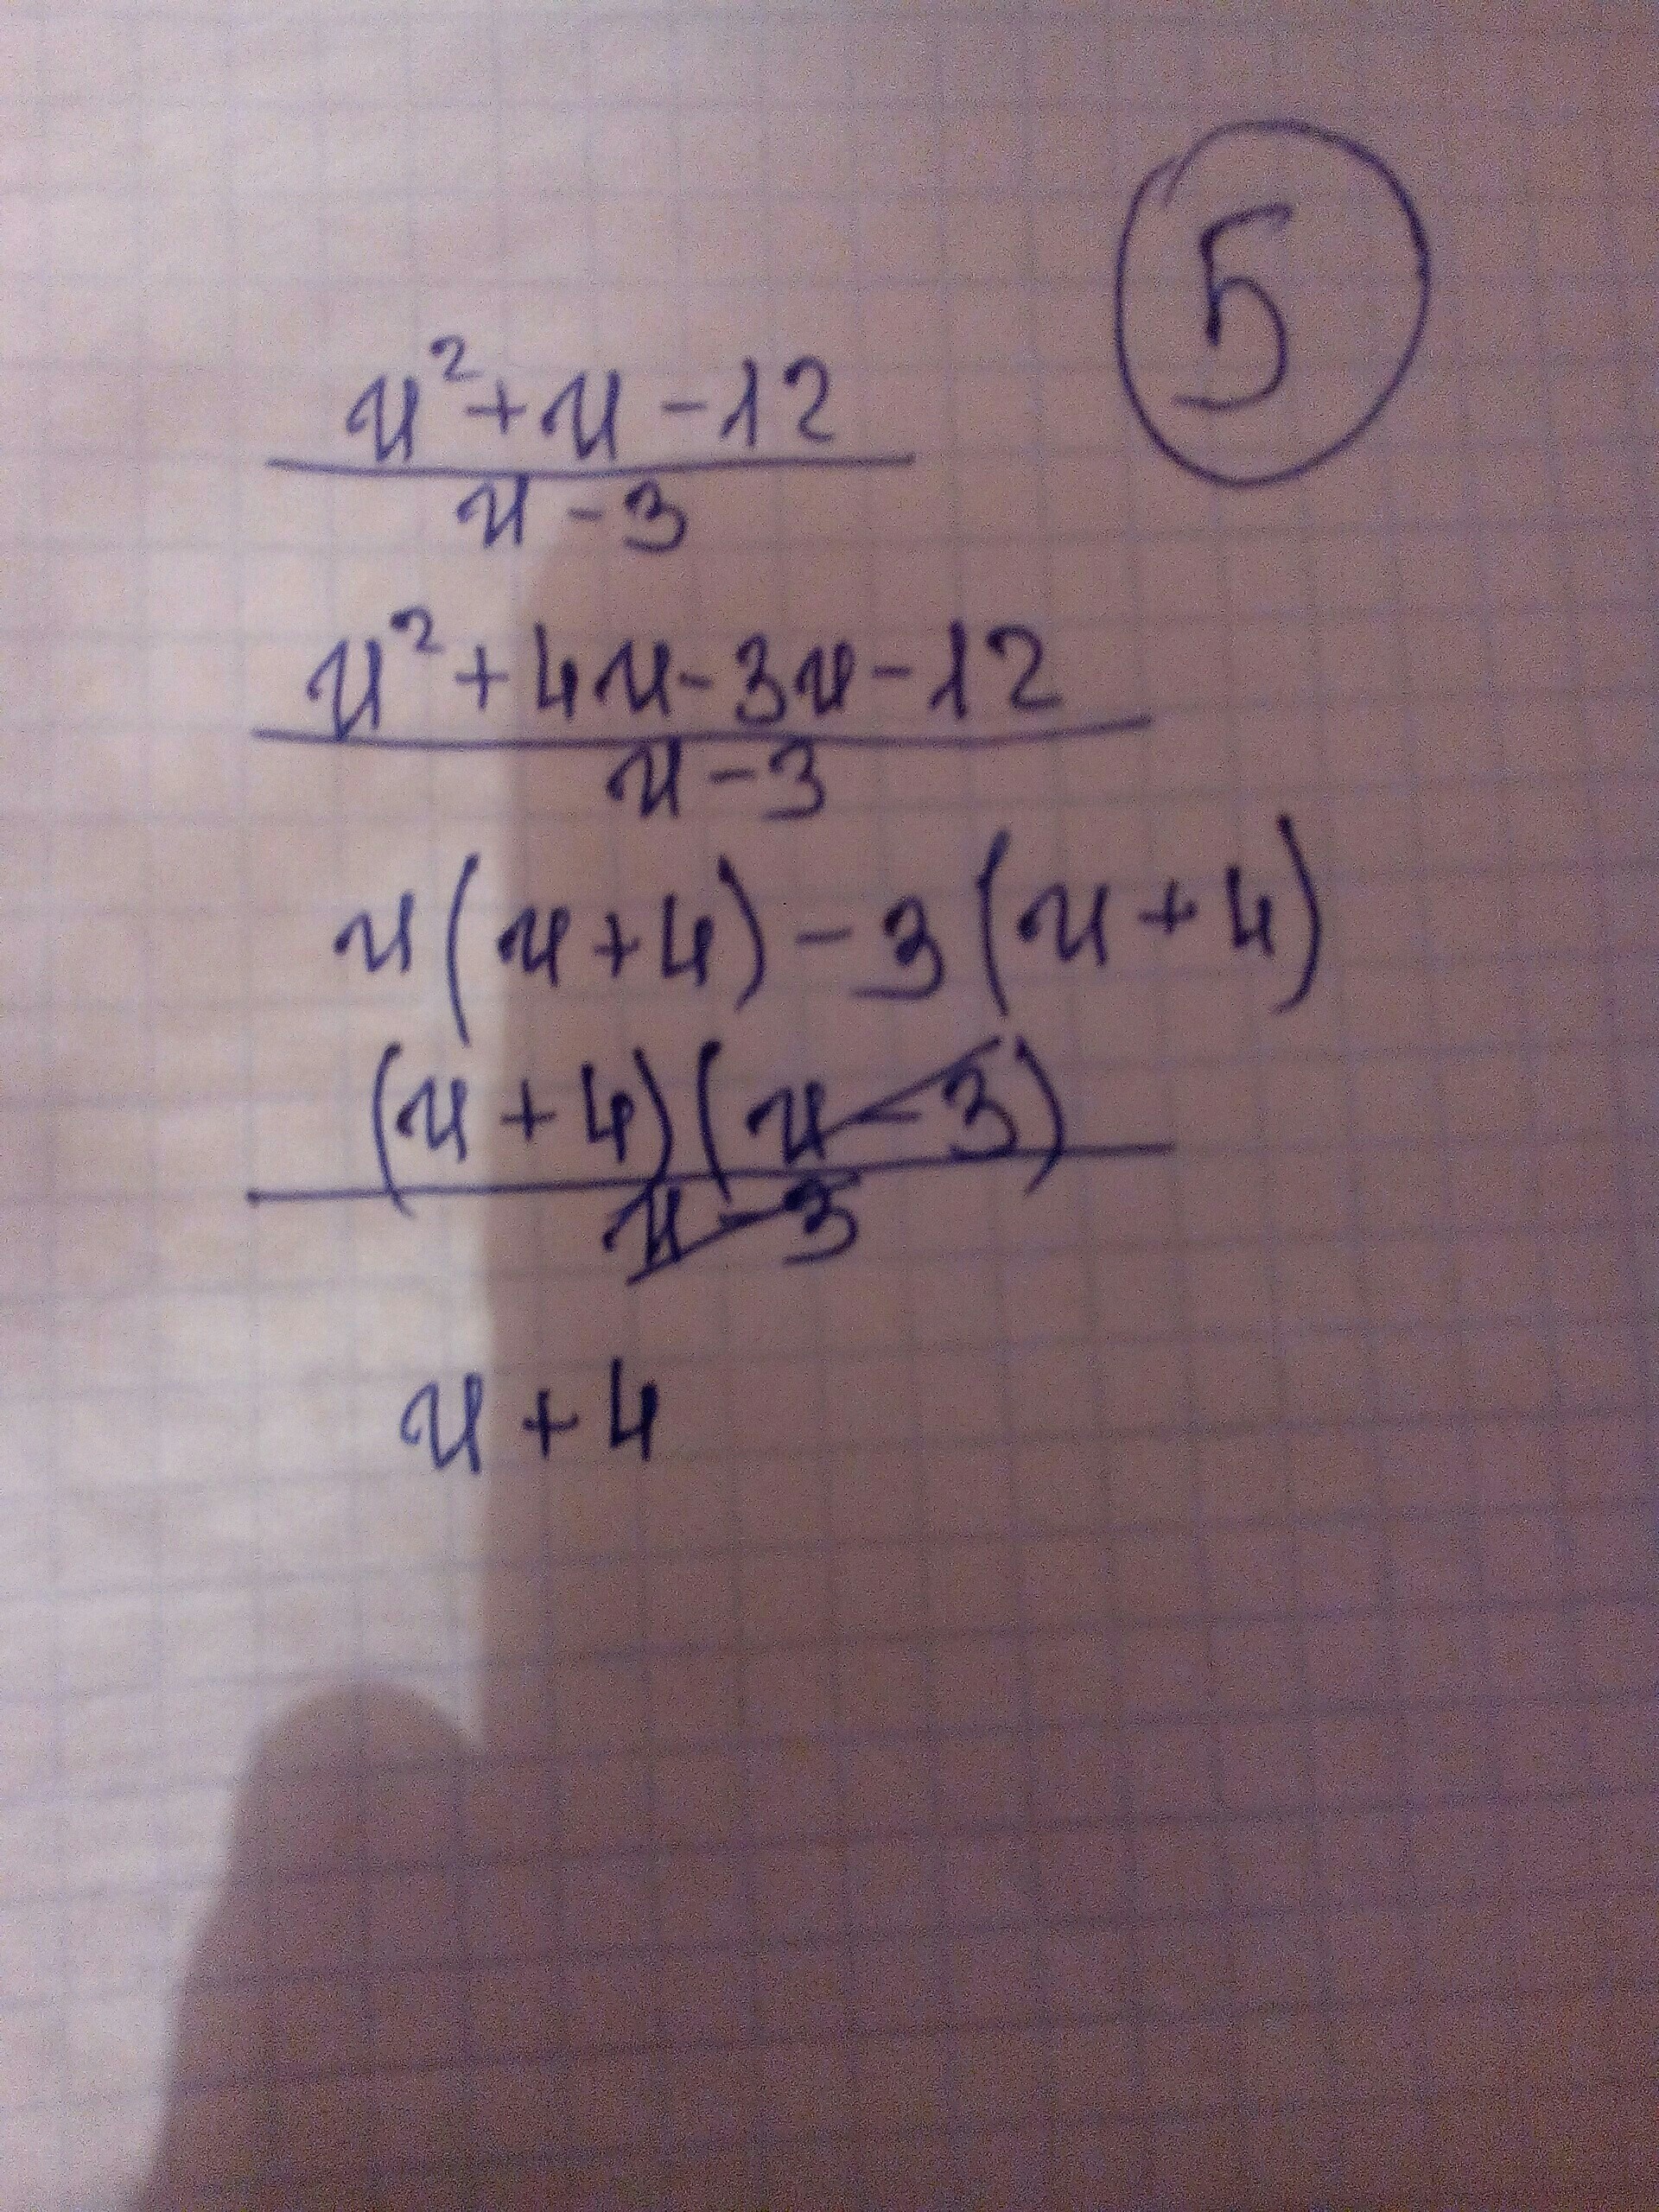 5
u² + u - 12
u - 3
u² + 4u - 3u - 12
u - 3
u(u + 4) - 3(u + 4)
(u + 4)(u - 3)
u - 3
u + 4